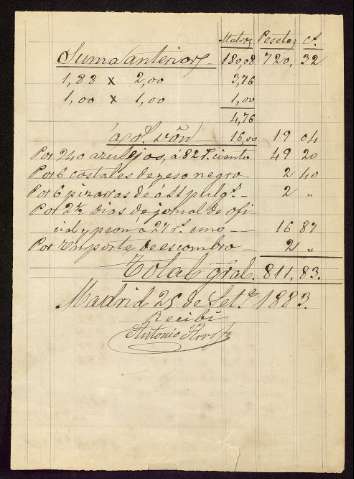 Metros Pesetas Cs.
Suma anterior 180,08 720, 32
1,88 x 2,00 3,76
1,00 x 1,00 1,00
4,76
á 16,00 19 04
Por 240 azulejos, á 82 rs. ciento 49 20
Por 6 costales de yeso negro 2 40
Por 6 pizarras de á 2 "
Por 2½ dias de jornal de ofi
cial y peon á 27 rs. uno 16 87
Por un porte de escombro 2 "
Total gral. 811,83.
Madrid 25 de Set.e 1883.
Recibí
Antonio